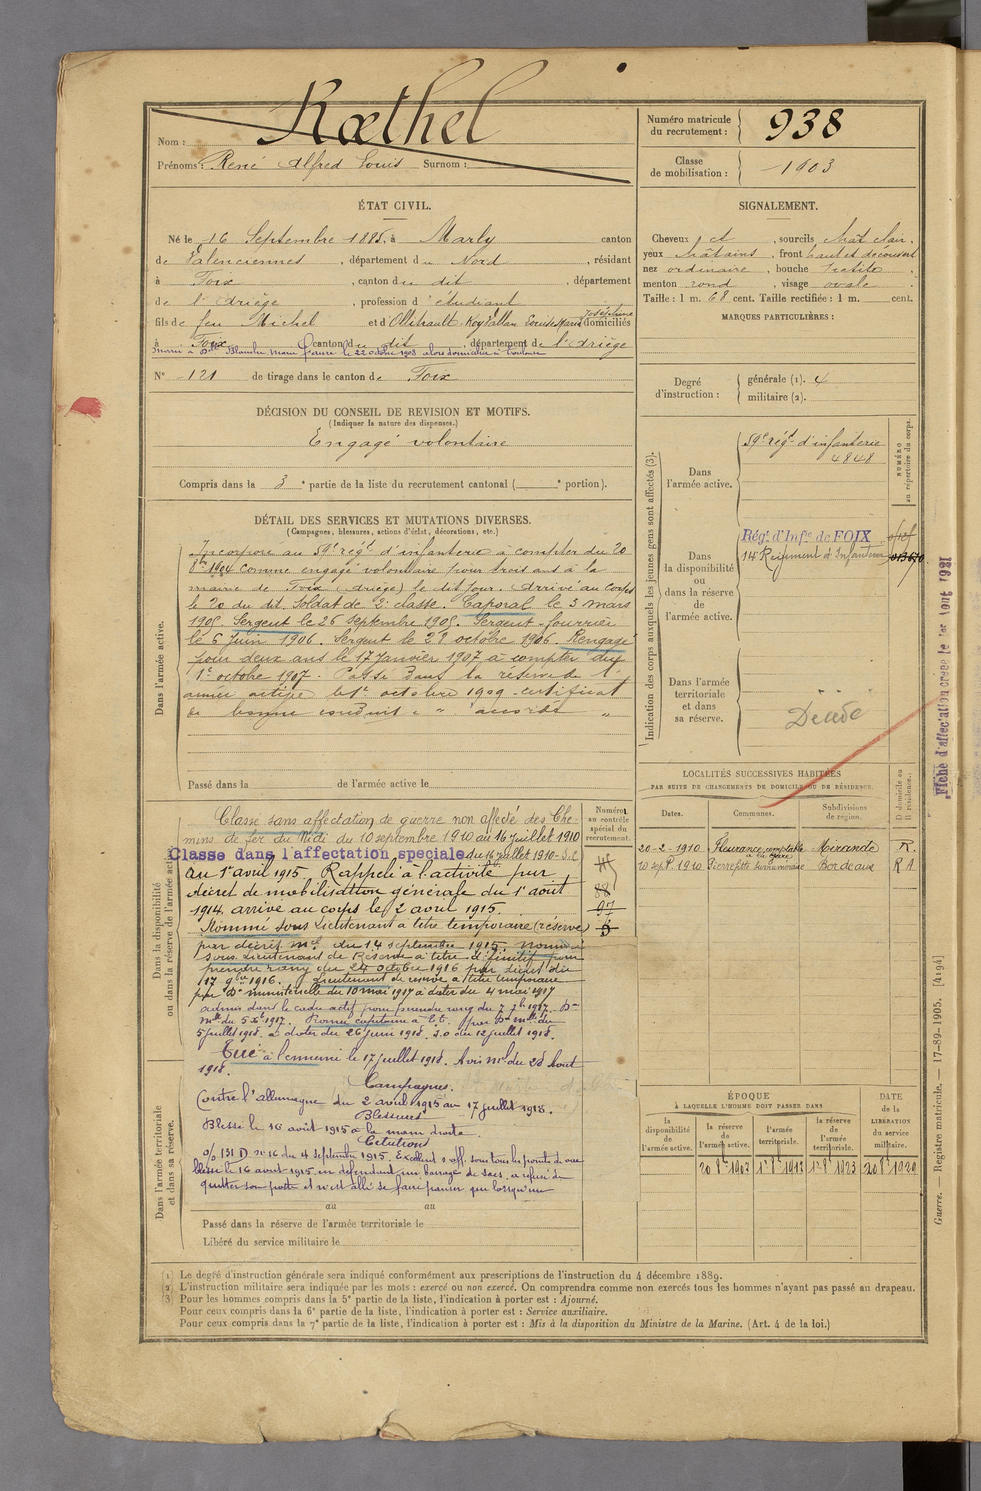 Nom : Rœthel
Prénoms : René Alfred Louis Surnom :
Numéro matricule du recrutement : 938
Classe de mobilisation : 1903
ÉTAT CIVIL.
Né le 16 Septembre 1885, à Marly canton
de Valenciennes, département du Nord, résidant
à Foix, canton du dit, département
de l'Ariège, profession d'étudiant
fils de feu Michel et d' Louise Marie Joséphine domiciliés
à Foix canton du dit, département de l'Ariège
Marié à Dlle Blanche Marie le 22 octobre 1908 alors domicilié à Toulouse
N° 121 de tirage dans le canton de Foix
SIGNALEMENT.
Cheveux et, sourcils chât clair,
yeux châtains, front haut et découvert
nez ordinaire, bouche petite,
menton rond, visage ovale.
Taille : 1 m. 68 cent. Taille rectifiée : 1 m. cent.
MARQUES PARTICULIÈRES :
Degré d'instruction : générale (1). 4
militaire (2).
DÉCISION DU CONSEIL DE REVISION ET MOTIFS.
(Indiquer la nature des dispenses.)
Engagé volontaire
Compris dans la 3e partie de la liste du recrutement cantonal ( e portion).
DÉTAIL DES SERVICES ET MUTATIONS DIVERSES.
(Campagnes, blessures, actions d'éclat, décorations, etc.)
Dans l'armée active.
Incorporé au 59e régt d'infanterie à compter du 20
8bre 1904 comme engagé volontaire pour trois ans à la
mairie de Foix (Ariège) le dit jour. Arrivé au corps
le 20 du dit. Soldat de 2e classe. Caporal le 3 mars
1905. Sergent le 26 septembre 1905. Sergent-fourrier
le 6 juin 1906. Sergent le 28 octobre 1906. Rengagé
pour deux ans le 17 Janvier 1907 à compter du
1er octobre 1907. Passé dans la réserve de l'
armée active le 1er octobre 1909. certificat
de bonne conduite " accordé "
Passé dans la de l'armée active le
Dans la disponibilité ou dans la réserve de l'armée active.
Classé sans affectation de guerre non affecté des Che-
mins de fer du Midi du 10 septembre 1910 au 16 juillet 1910
Classe dans l'affectation speciale du 16 juillet 1910
au 1er avril 1915. Rappelé à l'activité par
décret de mobilisation générale du 1er août
1914. arrivé au corps le 2 avril 1915.
Nommé sous Lieutenant à titre temporaire (réserve)
par décret mel du 14 septembre 1915. nommé
sous Lieutenant de Réserve à titre définitif pour
prendre rang du 24 octobre 1916 par décret du
17 9bre 1916. Lieutenant de réserve à titre temporaire
par Don ministérielle du 10 mai 1917 à dater du 4 mai 1917
admis dans le cadre actif pour prendre rang du 7 1917. Don
mlle du 5 1917. Promu capitaine à t.t. par Don mlle du
5 juillet 1918. à dater du 26 juin 1918. J.O du 12 juillet 1918.
Tué à l'ennemi le 17 juillet 1918. Avis mel du 28 Août
1918.
Campagnes.
Contre l'allemagne du 2 avril 1915 au 17 juillet 1918.
Blessures
Blessé le 16 août 1915 à la main droite.
Citations
O/D 131 D n° 16 du 4 septembre 1915. Excellent s/off. sous tous les points de vue
blessé le 16 août 1915 en défendant un barrage de sacs, a refusé de
quitter son poste et n'est allé se faire panser que lorsqu'une
Dans l'armée territoriale et dans sa réserve.
au au
Passé dans la réserve de l'armée territoriale le
Libéré du service militaire le
Numéros au contrôle spécial du recrutement.
97
Indication des corps auxquels les jeunes gens sont affectés (3).
NUMÉRO au répertoire du corps.
Dans l'armée active.
59e régt d'infanterie
4848
Dans la disponibilité ou dans la réserve de l'armée active.
Régt d'Infie de FOIX
14 Régiment d'Infanterie
Dans l'armée territoriale et dans sa réserve.
Décédé
LOCALITÉS SUCCESSIVES HABITÉES
PAR SUITE DE CHANGEMENTS DE DOMICILE OU DE RÉSIDENCE.
Dates. Communes. Subdivisions de région. D domicile ou R résidence.
20-2-1910 Fleurance comptable à la gare Mirande R.
10 sept 1910 Pierrefitte Bordeaux R A
ÉPOQUE
À LAQUELLE L'HOMME DOIT PASSER DANS
DATE de la LIBÉRATION du service militaire.
la disponibilité de l'armée active. la réserve de l'armée active. l'armée territoriale. la réserve de l'armée territoriale.
20 8bre 1907 1er 8bre 1913 1er 8bre 1923 20 8bre 1929
Fiche d'affectation créée le 1er Aout 1921
Guerre. — Registre matricule. — 17-89-1905. [4194]
(1) Le degré d'instruction générale sera indiqué conformément aux prescriptions de l'instruction du 4 décembre 1889.
(2) L'instruction militaire sera indiquée par les mots : exercé ou non exercé. On comprendra comme non exercés tous les hommes n'ayant pas passé au drapeau.
(3) Pour les hommes compris dans la 5e partie de la liste, l'indication à porter est : Ajourné.
Pour ceux compris dans la 6e partie de la liste, l'indication à porter est : Service auxiliaire.
Pour ceux compris dans la 7e partie de la liste, l'indication à porter est : Mis à la disposition du Ministre de la Marine. (Art. 4 de la loi.)